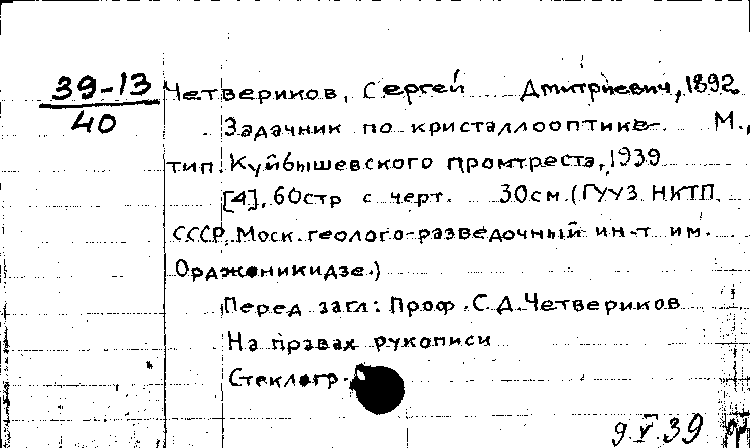 39-13
40
Четвериков, Сергей Дмитриевич, 1892
Задачник по кристаллооптике. М.,
тип. Куйбышевского промтреста, 1939
[4], 60стр с черт. 30см. (ГУУЗ НКТП
СССР. Моск. геолого-разведочный ин-т им.
Орджоникидзе.)
Перед загл: Проф. С.Д. Четвериков
На правах рукописи
Стеклогр.
9 V 39